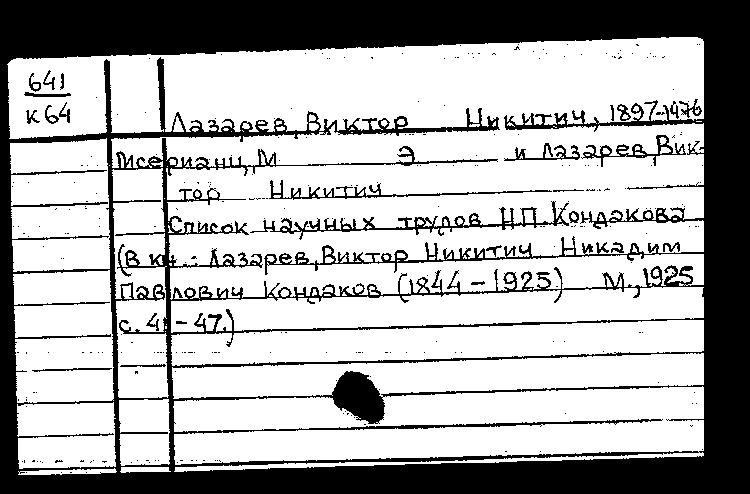 641
К64
Лазарев, Виктор Никитич, 1897-1976
Писерианц, М Э и Лазарев, Вик-
тор Никитич
Список научных трудов Н.П. Кондакова
(В кн.: Лазарев, Виктор Никитич Никадим
Павлович Кондаков (1844-1925) М., 1925,
с. 41-47.)